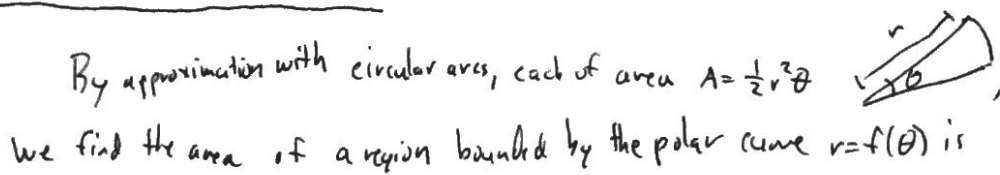 By approximation with circular arcs, each of area A = ½ r²θ r θ ,
we find the area of a region bounded by the polar curve r = f(θ) is